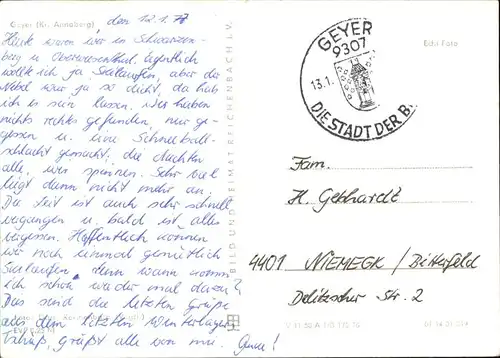 Geyer (Kr. Annaberg)
den 12.1.78
Heute waren wir in Schwarzen-
berg u. Oberwiesenthal. Eigentlich
wollte ich ja Skilaufen, aber der
Nebel war ja so dicht, da hab
ich es sein lassen. Wir haben
nichts rechts gefunden, nur ge-
gessen u. eine Schneeball-
schlacht gemacht, die dachten
alle, wir spinnen. Sehr viel
liegt dann nicht mehr an.
Die Zeit ist auch sehr schnell
vergangen u. bald ist alles
vergessen. Hoffentlich können
wir noch einmal gemütlich
Skilaufen, denn wann komm
ich schon wieder mal dazu?
Das sind die letzten Grüße
aus dem letzten Winterlager
Tschüß, grüßt alle von mir.
BILD UND HEIMAT REICHENBACH I. V.
GEYER
9307
13.1.
DIE STADT DER B
Edu-Foto
Fam.
H. Gebhardt
4401 NIEMEGK / Bitterfeld
Delitzscher Str. 2